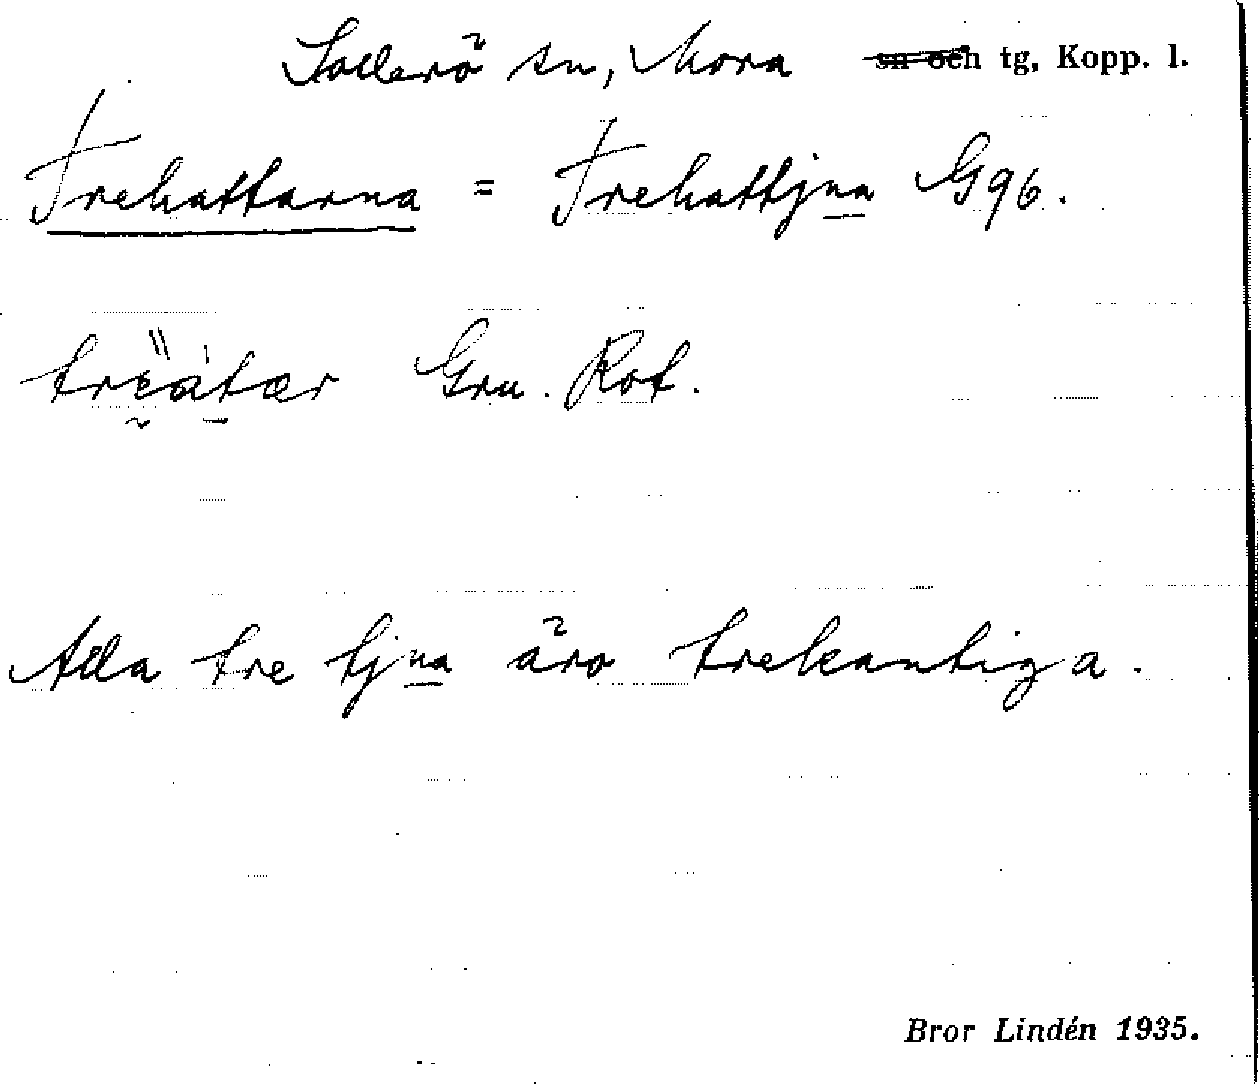 Sollerö sn, Mora sn och tg, Kopp. l.
Trehattarna = Trehattjna G96.
Gru. Rot.
Alla tre tjna äro trekantiga.
Bror Lindén 1935.